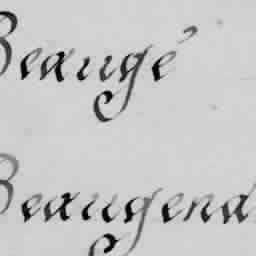 Beaugé
Beaugend